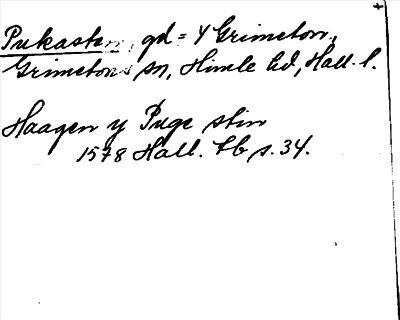 Pukasten, gd = Y Grimeton,
Grimetons sn, Himle hd, Hall. l.
Haagen y Puge stin
1578 Hall. tb s. 34.